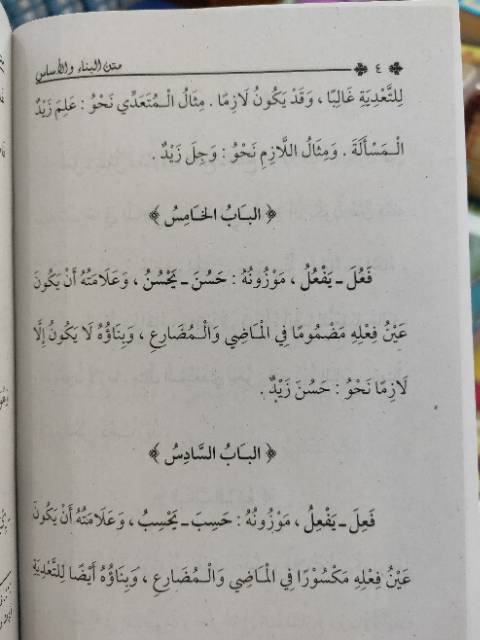 ٤ متن البناء والأساس
لِلتَّعْدِيَةِ غَالِبًا ، وَقَدْ يَكُونُ لَازِمًا . مِثَالُ الْـمُتَعَدِّي نَحْوُ : عَلِمَ زَيْدٌ
الْـمَسْأَلَةَ . وَمِثَالُ اللَّازِمِ نَحْوُ : وَجِلَ زَيْدٌ .
﴿ البَابُ الخَامِسُ ﴾
فَعُلَ ـ يَفْعُلُ ، مَوْزُونُهُ : حَسُنَ ـ يَحْسُنُ ، وَعَلَامَتُهُ أَنْ يَكُونَ
عَيْنُ فِعْلِهِ مَضْمُومًا فِي الْمَاضِي وَالْـمُضَارِعِ ، وَبِنَاؤُهُ لَا يَكُونُ إِلَّا
لَازِمًا نَحْوُ : حَسُنَ زَيْدٌ .
﴿ البَابُ السَّادِسُ ﴾
فَعِلَ ـ يَفْعِلُ ، مَوْزُونُهُ : حَسِبَ ـ يَحْسِبُ ، وَعَلَامَتُهُ أَنْ يَكُونَ
عَيْنُ فِعْلِهِ مَكْسُوْرًا فِي الْمَاضِي وَالْـمُضَارِعِ ، وَبِنَاؤُهُ أَيْضًا لِلتَّعْدِيَةِ